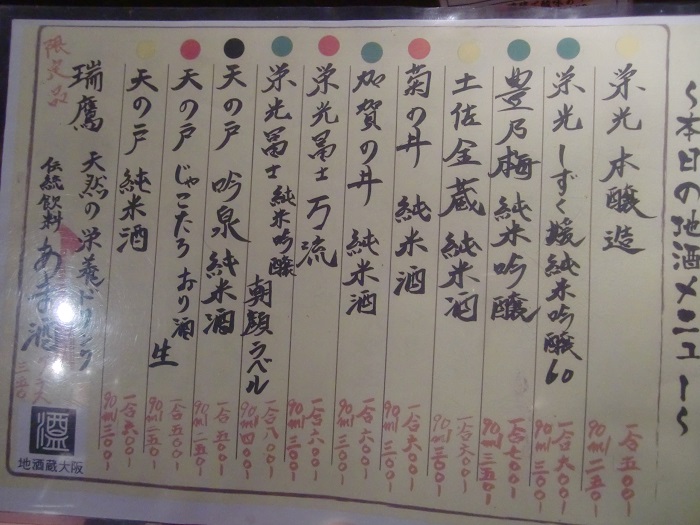 ～本日の地酒メニュー～
栄光 本醸造 一合五〇〇- 90ml二五〇-
栄光 しずく媛 純米吟醸60 一合六〇〇- 90ml三〇〇-
豊乃梅 純米吟醸 一合七〇〇- 90ml三五〇-
土佐金蔵 純米酒 一合六〇〇- 90ml三〇〇-
菊の井 純米酒 一合六〇〇- 90ml三〇〇-
加賀の井 純米酒 一合六〇〇- 90ml三〇〇-
栄光冨士 万流 一合六〇〇- 90ml三〇〇-
栄光冨士 純米吟醸 朝顔ラベル 一合八〇〇- 90ml四〇〇-
天の戸 吟泉 純米酒 一合五〇〇- 90ml二五〇-
天の戸 じゃこたろ おり酒 生 一合五〇〇- 90ml二五〇-
天の戸 純米酒 一合六〇〇- 90ml三〇〇-
限定品
瑞鷹 天然の栄養ドリンク
伝統飲料 あま酒 三五〇-
地酒蔵大阪